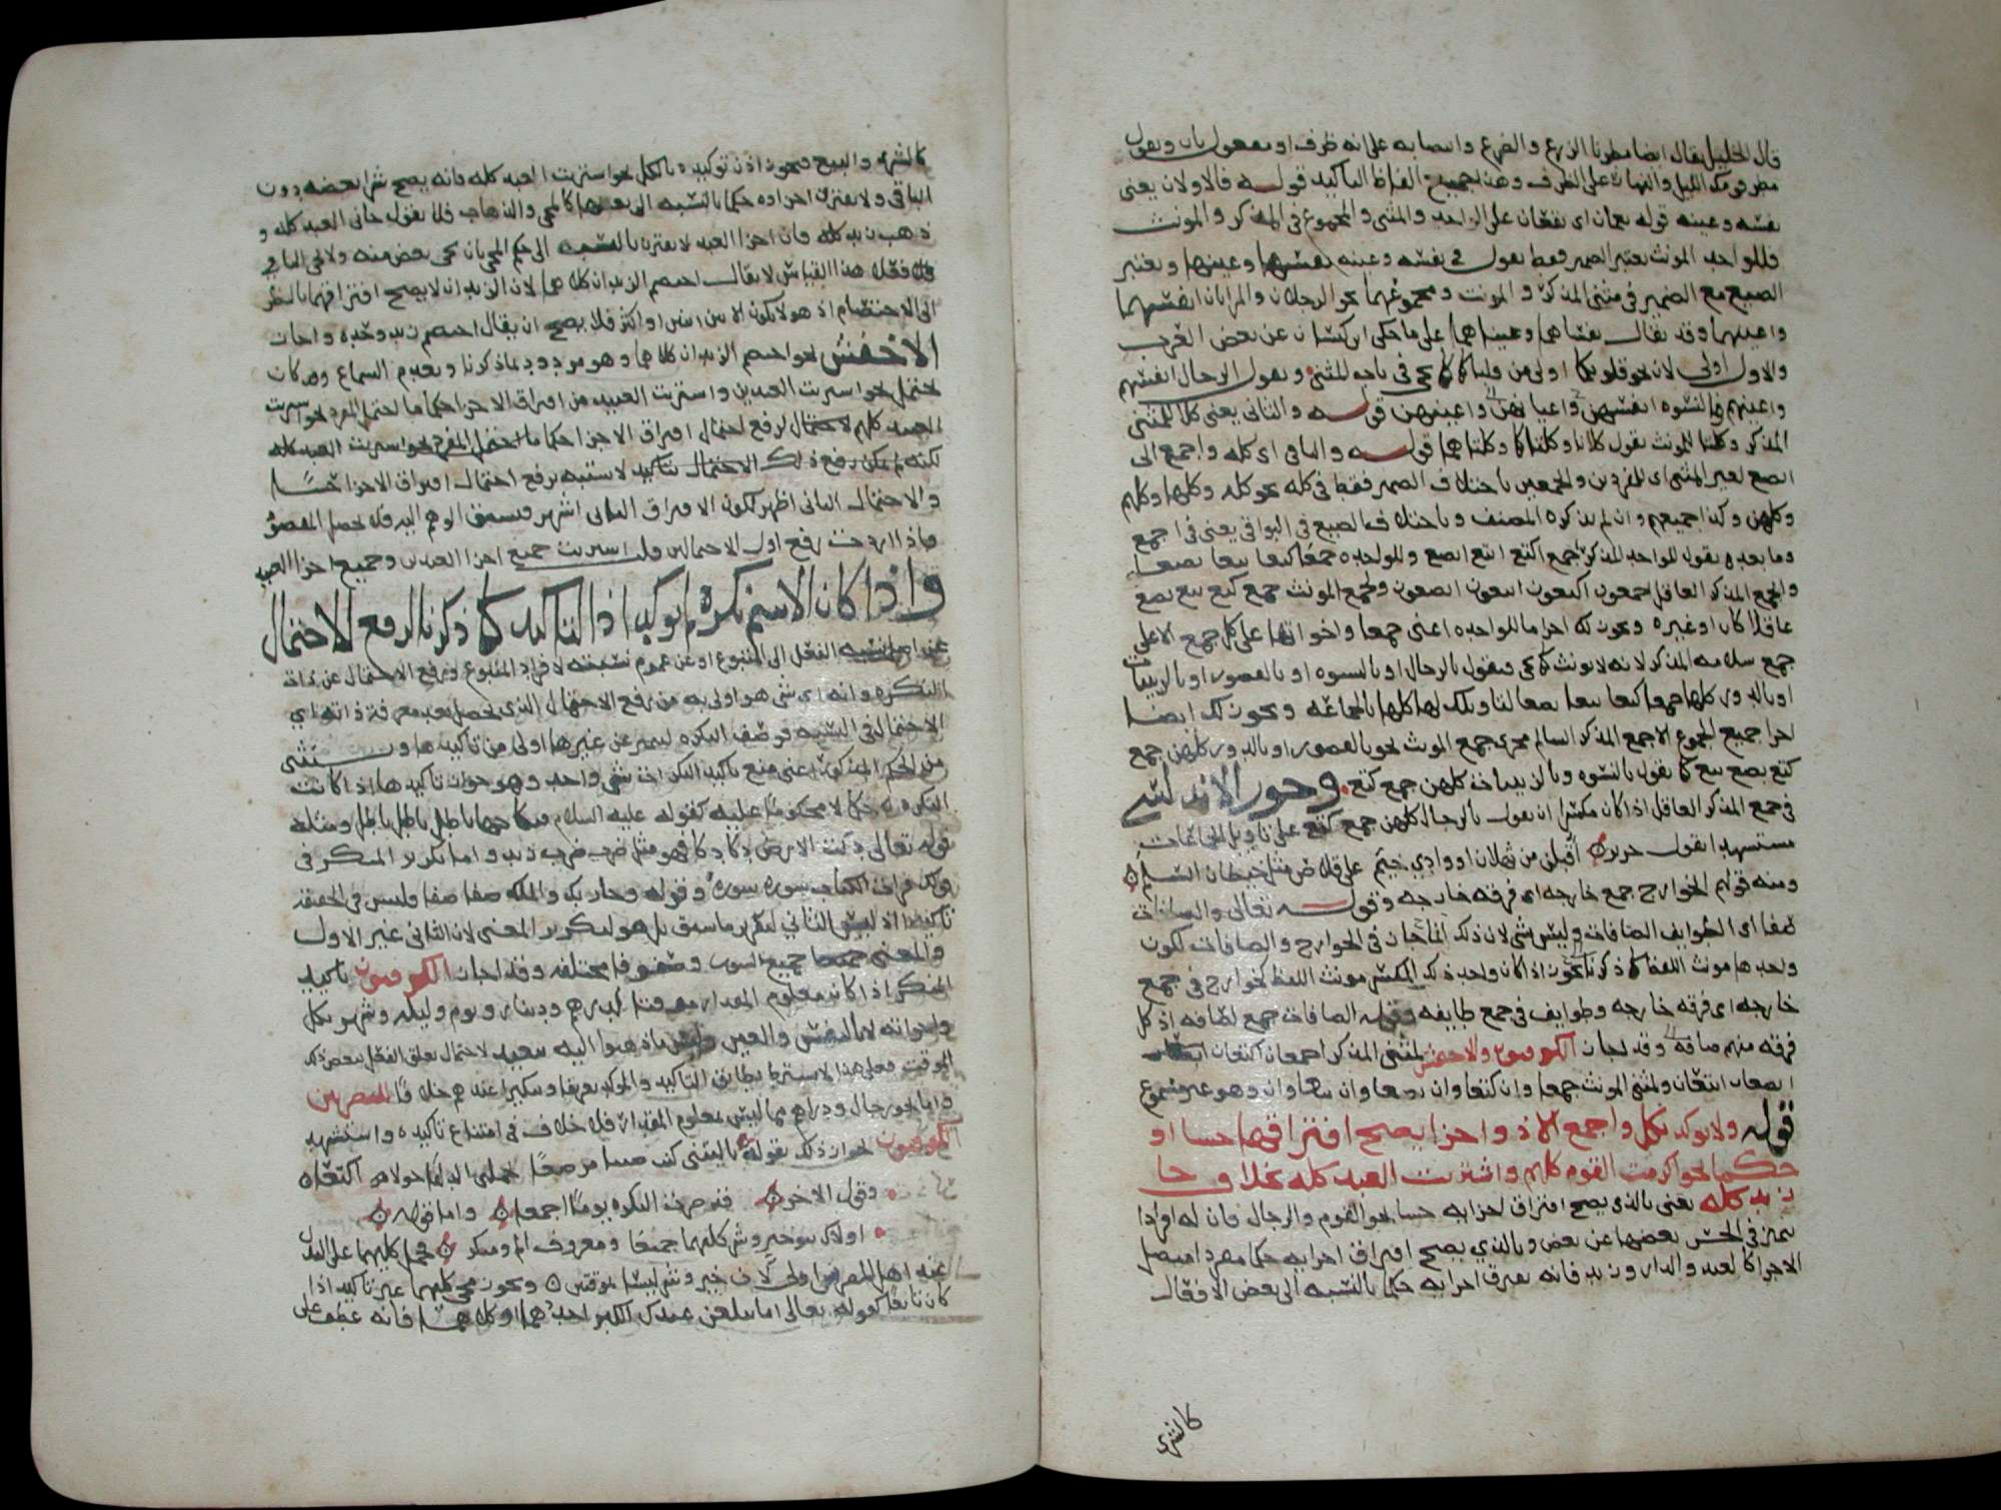 قال الخليل يقال ايضا مطرنا الزرع والضرع وانتصابه على انه ظرف او مفعول ثان ونقول
مطر قومك الليل والنهار على الظرف وهذا جميع الفاظ التاكيد قوله فالاولان يعنى
نفسه وعينه قوله يعمان اى يقعان على الواحد والمثنى والمجموع فى المذكر والمونث
فللواحد المونث يعتبر الضمير فقط تقول فى نفسه وعينه نفسها وعينها ويعتبر
الصيغ مع الضمير فى مثنى المذكر والمونث ومجموعهما نحو الرجلان والمراتان انفسهما
واعينهما وقد يقال نفساهما وعيناهما على ما حكى ابن كيسان عن بعض العرب
والاول اولى لان نحو قلوبكما اولى من قلباكما كما يجى فى باب المثنى وتقول الرجال انفسهم
واعينهم والنسوة انفسهن واعيانهن واعينهن قوله والثانى يعنى كلا للمثنى
المذكر وكلتا للمونث تقول كلانا وكلتاكما وكلتاهما قوله والباقى اى كله واجمع الى
ابصع لغير المثنى اى للمفرد والجمعين باختلاف الضمير فقط فى كله نحو كله وكلها وكلهم
وكلهن وكذا جميعهم وان لم يذكره المصنف وباختلاف الصيغ فى البواقى يعنى فى اجمع
وما بعده تقول للواحد المذكر اجمع اكتع ابتع ابصع وللواحدة جمعا كتعا بتعا بصعا
والجمع المذكر العاقل اجمعون اكتعون ابتعون ابصعون ولجمع المونث جمع كتع بتع بصع
عاقلا كان او غيره ويجوز لك اجرا ما للواحدة اعنى جمعا واخواتها على كل جمع الا على
جمع سلامه المذكر لانه لا يونث كما يجى فتقول بالرجال او بالنسوه او بالقصور او بالزينبات
او بالدور كلها جمعا كتعا بتعا بصعا لتاويلك لها كلها بالجماعه ويجوز لك ايضا
اجرا جميع الجموع الا جمع المذكر السالم مجرى جمع المونث نحو بالقصور او بالدور كلهن جمع
كتع بصع بتع كما تقول بالنسوه وبالزينبات كلهن جمع كتع وجوز الاندلسى
فى جمع المذكر العاقل اذا كان مكسرا ان يقول بالرجال كلهن جمع كتع على تاويل الجماعات
مستشهدا بقول جرير اقبلن من ثهلان او وادى خيم على قلاص مثل خيطان السلم
ومنه قولهم الخوارج جمع خارجه اى فرقه خارجه وقوله تعالى والصافات
صفا اى الطوايف الصافات وليس بشى لان ذلك انما جاز فى الخوارج والصافات لكون
واحدها مونث اللفظ كما ذكرنا يجوز اذا كان واحد ذلك المكسر مونث اللفظ كخوارج فى جمع
خارجه اى فرقه خارجه وطوايف فى جمع طايفه وقوله الصافات جمع لصافه اذ كل
فرقه منهم صافه وقد اجاز الكوفيون والاخفش لمثنى المذكر اجمعان اكتعان
ابصعان ابتعان ولمثنى المونث جمعاوان كتعاوان بصعاوان بتعاوان وهو غير مسموع
قوله ولا يوكد بكل واجمع الا ذو اجزا يصح افتراقها حسا او
حكما نحو اكرمت القوم كلهم واشتريت العبد كله بخلاف جا
زيد كله يعنى بالذى يصح افتراق اجزايه حسا نحو القوم والرجال فان له افرادا
يتميز فى الحس بعضها عن بعض وبالذى يصح افتراق اجزايه حكما مفرد متصل
الاجزا كالعبد والدار وزيد فانه يفترق اجزايه حكما بالنسبه الى بعض الافعال
كالشرى
كالشرى والبيع فيجوز اذن توكيده بالكل نحو اشتريت العبد كله فانه يصح شرى بعضه دون
الباقى ولا يفترق اجزاوه حكما بالنسبه الى بعضها كالمجى والذهاب فلا تقول جانى العبد كله و
ذهب زيد كله فان اجزا العبد لا يفترق بالنسبه الى حكم المجى بان يجى بعض منه ولا يجى الباقى
فعلى هذا القياس لا يقال اختصم الزيدان كلاهما لان الزيدان لا يصح افتراقهما بالنظر
الى الاختصام اذ هو لا يكون الا بين اثنين او اكثر فلا يصح ان يقال اختصم زيد وحده واجاز
الاخفش نحو اختصم الزيدان كلاهما وهو مردود بما ذكرنا وبعدم السماع وان كان
يحتمل نحو اشتريت العبدين واشتريت العبيد من افتراق الاجزا حكما ما يحتمل المفرد نحو اشتريت
العبد كله
لكنه لم يكن رفع ذلك الاحتمال بتاكيد لاشتبه برفع احتمال افتراق الاجزا حسا
والاحتمال الثانى اظهر لكون الافتراق الثانى اشهر فيسبق الوهم اليه فلا يحصل المقصود
فاذا اردت رفع اول الاحتمالين قلت اشتريت جميع اجزا العبدين وجميع اجزا العبيد
واذا كان الاسم نكره لم يوكد اذ التاكيد كما ذكرنا لرفع الاحتمال
عن اصل نسبه الفعل الى المتبوع او عن عموم نسبته لافراد المتبوع ورفع الاحتمال عن ذات
النكره وانه اى شى هو اولى به من رفع الاحتمال الذى يحصل بعد معرفة ذاته اى
الاحتمال فى النسبه فوصف النكره لتتميز عن غيرها اولى من تاكيدها ويستثنى
من الحكم المذكور اعنى منع تاكيد النكرات شى واحد وهو جواز تاكيدها اذا كانت
النكره حكما لا محكوما عليه كقوله عليه السلام فنكاحها باطل باطل باطل ومثله
قوله تعالى دكت الارض دكا دكا فهو مثل ضرب ضرب زيد واما تكرير المنكر فى
قولك قرات الكتاب سورة سورة وقوله وجا ربك والملك صفا صفا فليس فى الحقيقه
تاكيدا اذ ليس الثانى لتقرير ما سبق بل هو لتكرير المعنى لان الثانى غير الاول
والمعنى جميع السور وصفوفا مختلفه وقد اجاز الكوفيون تاكيد
المنكر اذا كان معلوم المقدار موقتا كدرهم ودينار ويوم وليله وشهر بكل
واخواته لا بالنفس والعين وليس ما ذهبوا اليه ببعيد لاحتمال تعلق الفعل ببعض ذلك
الموقت فعلى هذا لا يشترط تطابق التاكيد والموكد تعريفا وتنكيرا عندهم خلافا للبصريين
واما نحو رجال ودراهم مما ليس معلوم المقدار فلا خلاف فى امتناع تاكيده واستشهد
الكوفيون لجواز ذلك بقوله يا ليتنى كنت صبيا مرضعا تحملنى الذلفا حولا اكتعا
وقول الاخر قد صرت البكره يوما اجمعا واما قوله
اولاك بنو خير وشر كليهما جميعا ومعروف الم ومنكر فحمل كليهما على البدل
عند اهل المصرين اولى لان خير وشر ليسا بموقتين ويجوز مجى كليهما غير تاكيد اذا
كان تابعا كقوله تعالى اما يبلغن عندك الكبر احدهما او كلاهما فانه عطف على